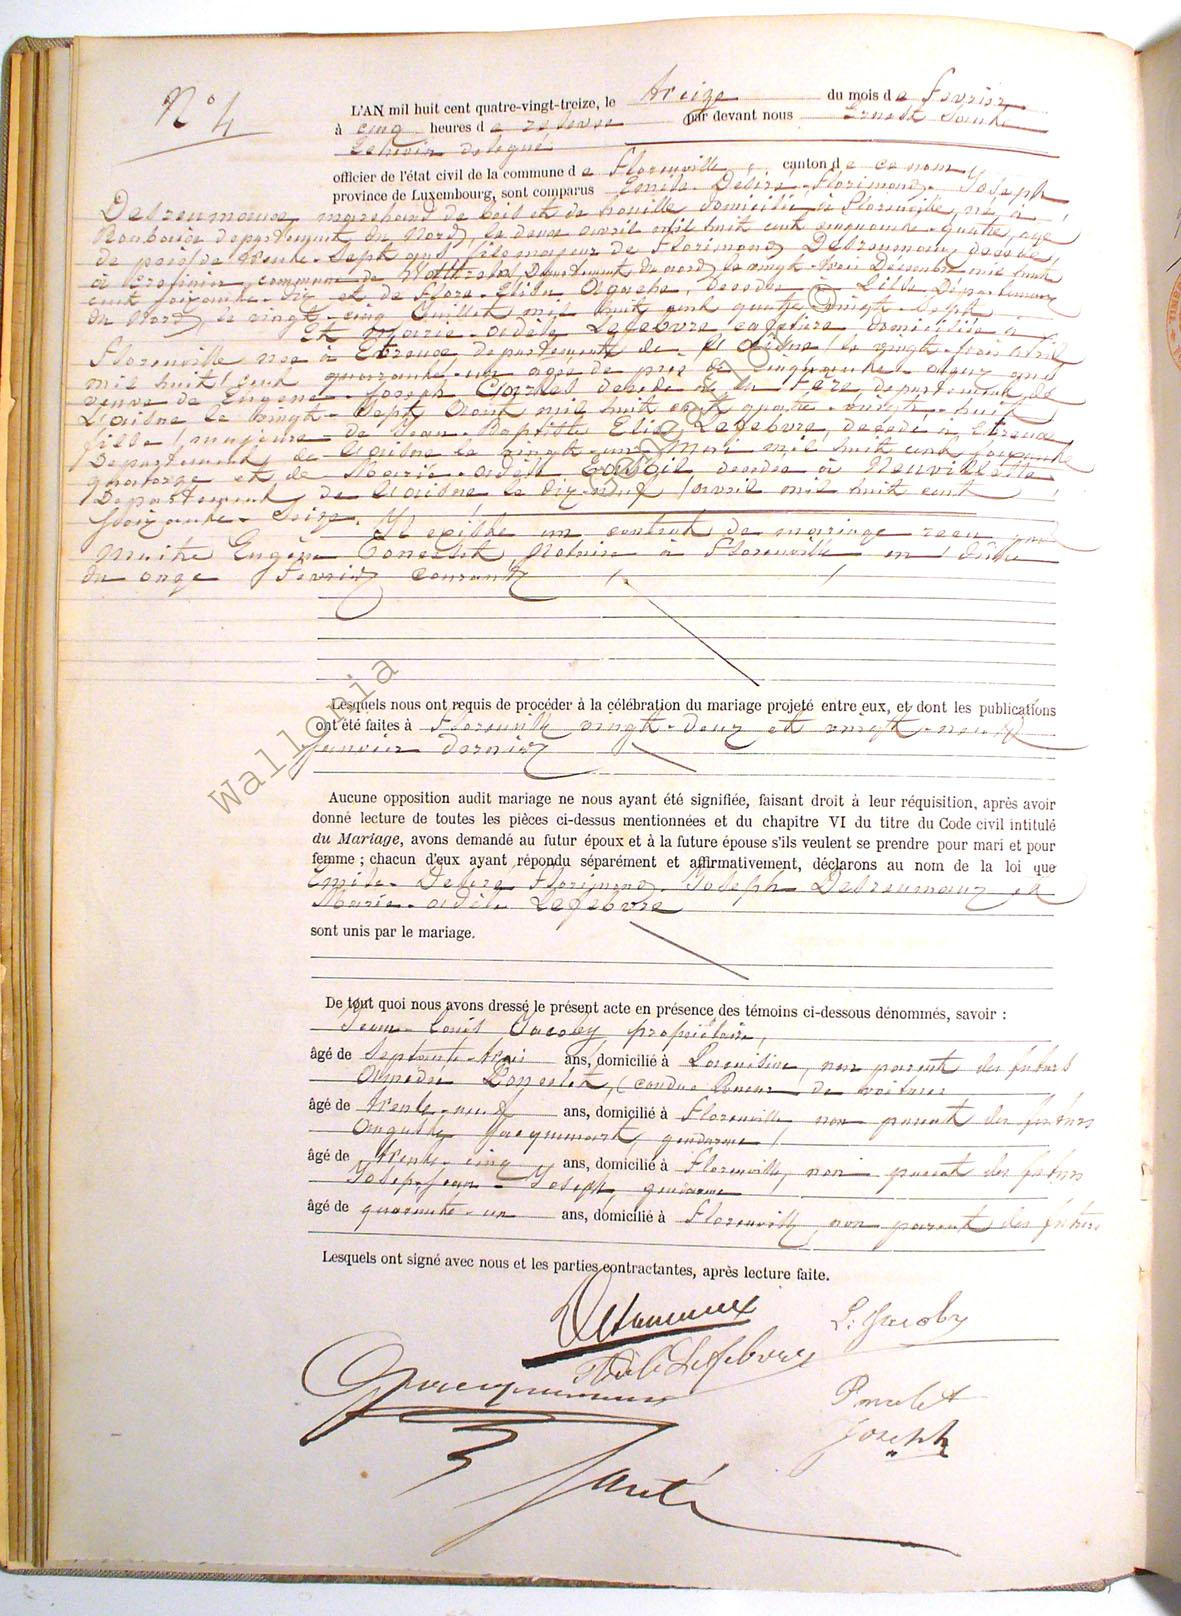 N° 4
L'AN mil huit cent quatre-vingt-treize, le treize du mois de février
à cinq heures de relevée par devant nous Ernest Santé
Echevin délégué
officier de l'état civil de la commune de Florenville, canton de ce nom
province de Luxembourg, sont comparus Emile-Désiré-Florimond-Joseph
Desreumaux, marchand de bois et de houille domicilié à Florenville, né à
Roubaix département du Nord, le deux avril mil huit cent cinquante-quatre, agé
de près de trente-sept ans fils majeur de Florimond Desreumaux décédé,
à commune de Wattrelos Département du nord, le vingt-trois Décembre mil huit
cent soixante-dix et de Flore Agache décédée à Lille Département
du Nord, le vingt-cinq Juillet mil huit cent quatre vingt-sept
Et Marie-Adèle Lefebvre domiciliée à
Florenville née à Etreux département de l'Aisne le vingt-trois Avril
mil huit cent quarante-un agée de près de cinquante-deux ans
veuve de Eugène-Joseph décédé à La Fère département de
L'aisne le vingt-sept Aout mil huit cent quatre-vingt-huit
fille majeure de Jean-Baptiste Elie Lefebvre, décédé à Etreux
Département de l'Aisne le vingt-un Mai mil huit cent soixante
quatorze et de Marie-Adèle décédée à Neuvillette
Département de l'Aisne le dix-neuf avril mil huit cent
soixante-seize. Il existe un contrat de mariage reçu par
Maître Eugène Poncelet, Notaire à Florenville en date
du onze Février courant
Lesquels nous ont requis de procéder à la célébration du mariage projeté entre eux, et dont les publications
ont été faites à Florenville vingt-deux et vingt-neuf
janvier dernier
Aucune opposition audit mariage ne nous ayant été signifiée, faisant droit à leur réquisition, après avoir
donné lecture de toutes les pièces ci-dessus mentionnées et du chapitre VI du titre du Code civil intitulé
du Mariage, avons demandé au futur époux et à la future épouse s'ils veulent se prendre pour mari et pour
femme ; chacun d'eux ayant répondu séparément et affirmativement, déclarons au nom de la loi que
Emile-Désiré-Florimond-Joseph Desreumaux et
Marie-Adèle Lefebvre
sont unis par le mariage.
De tout quoi nous avons dressé le présent acte en présence des témoins ci-dessous dénommés, savoir :
Jean-Louis Jacoby propriétaire,
âgé de septante-trois ans, domicilié à Lacuisine, non parent des futurs
Amédée Poncelet, conducteur de voitures
âgé de trente-neuf ans, domicilié à Florenville non parent des futurs
Auguste Jacquemart, gendarme
âgé de trente-cinq ans, domicilié à Florenville, non parent des futurs
Jean-Joseph gendarme
âgé de quarante-un ans, domicilié à Florenville, non parent des futurs
Lesquels ont signé avec nous et les parties contractantes, après lecture faite.
Desreumaux
L. Jacoby
Adèle Lefebvre
Poncelet
Joseph
Santé
Wallonia Genealogy ©